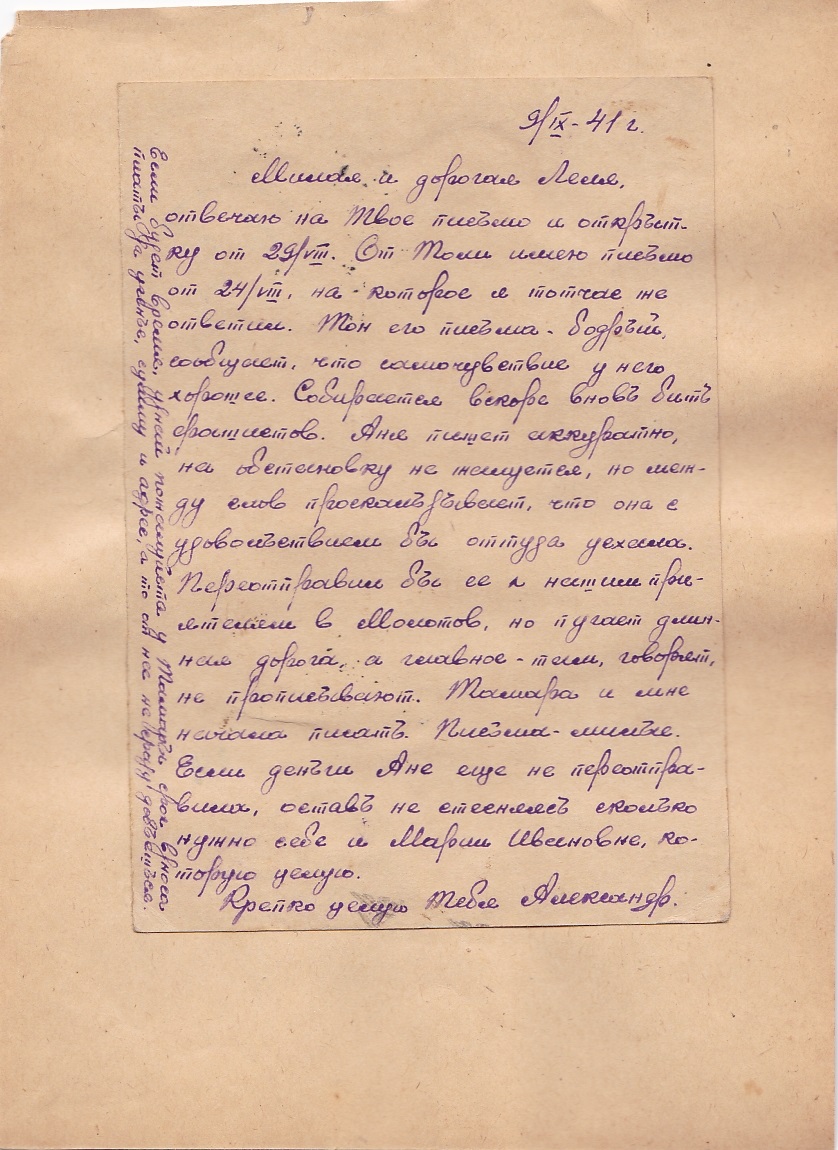 9/IX - 41 г.
Милая и дорогая Леля,
отвечаю на Твое письмо и открыт-
ку от 29/VIII. От Толи имею письмо
от 24/VIII, на которое я тотчас же
ответил. Тон его письма - бодрый,
сообщает, что самочувствие у него
хорошее. Собирается вскоре вновь бить
фашистов. Аня пишет аккуратно,
на обстановку не жалуется, но меж-
ду слов проскальзывает, что она с
удовольствием бы оттуда уехала.
Переотправил бы ее к нашим при-
ятелям в Молотов, но пугает длин-
ная дорога, а главное - там, говорят,
не прописывают. Тамара и мне
начала писать. Письма - милые.
Если деньги Ане еще не переотпра-
вила, оставь не стесняясь сколько
нужно себе и Марии Ивановне, ко-
торую целую.
Крепко целую Тебя Александр.
Если будет время, узнай пожалуйста у Тамары срок взноса
платы за ученье, сумму и адрес, а то от нее не добьешься.